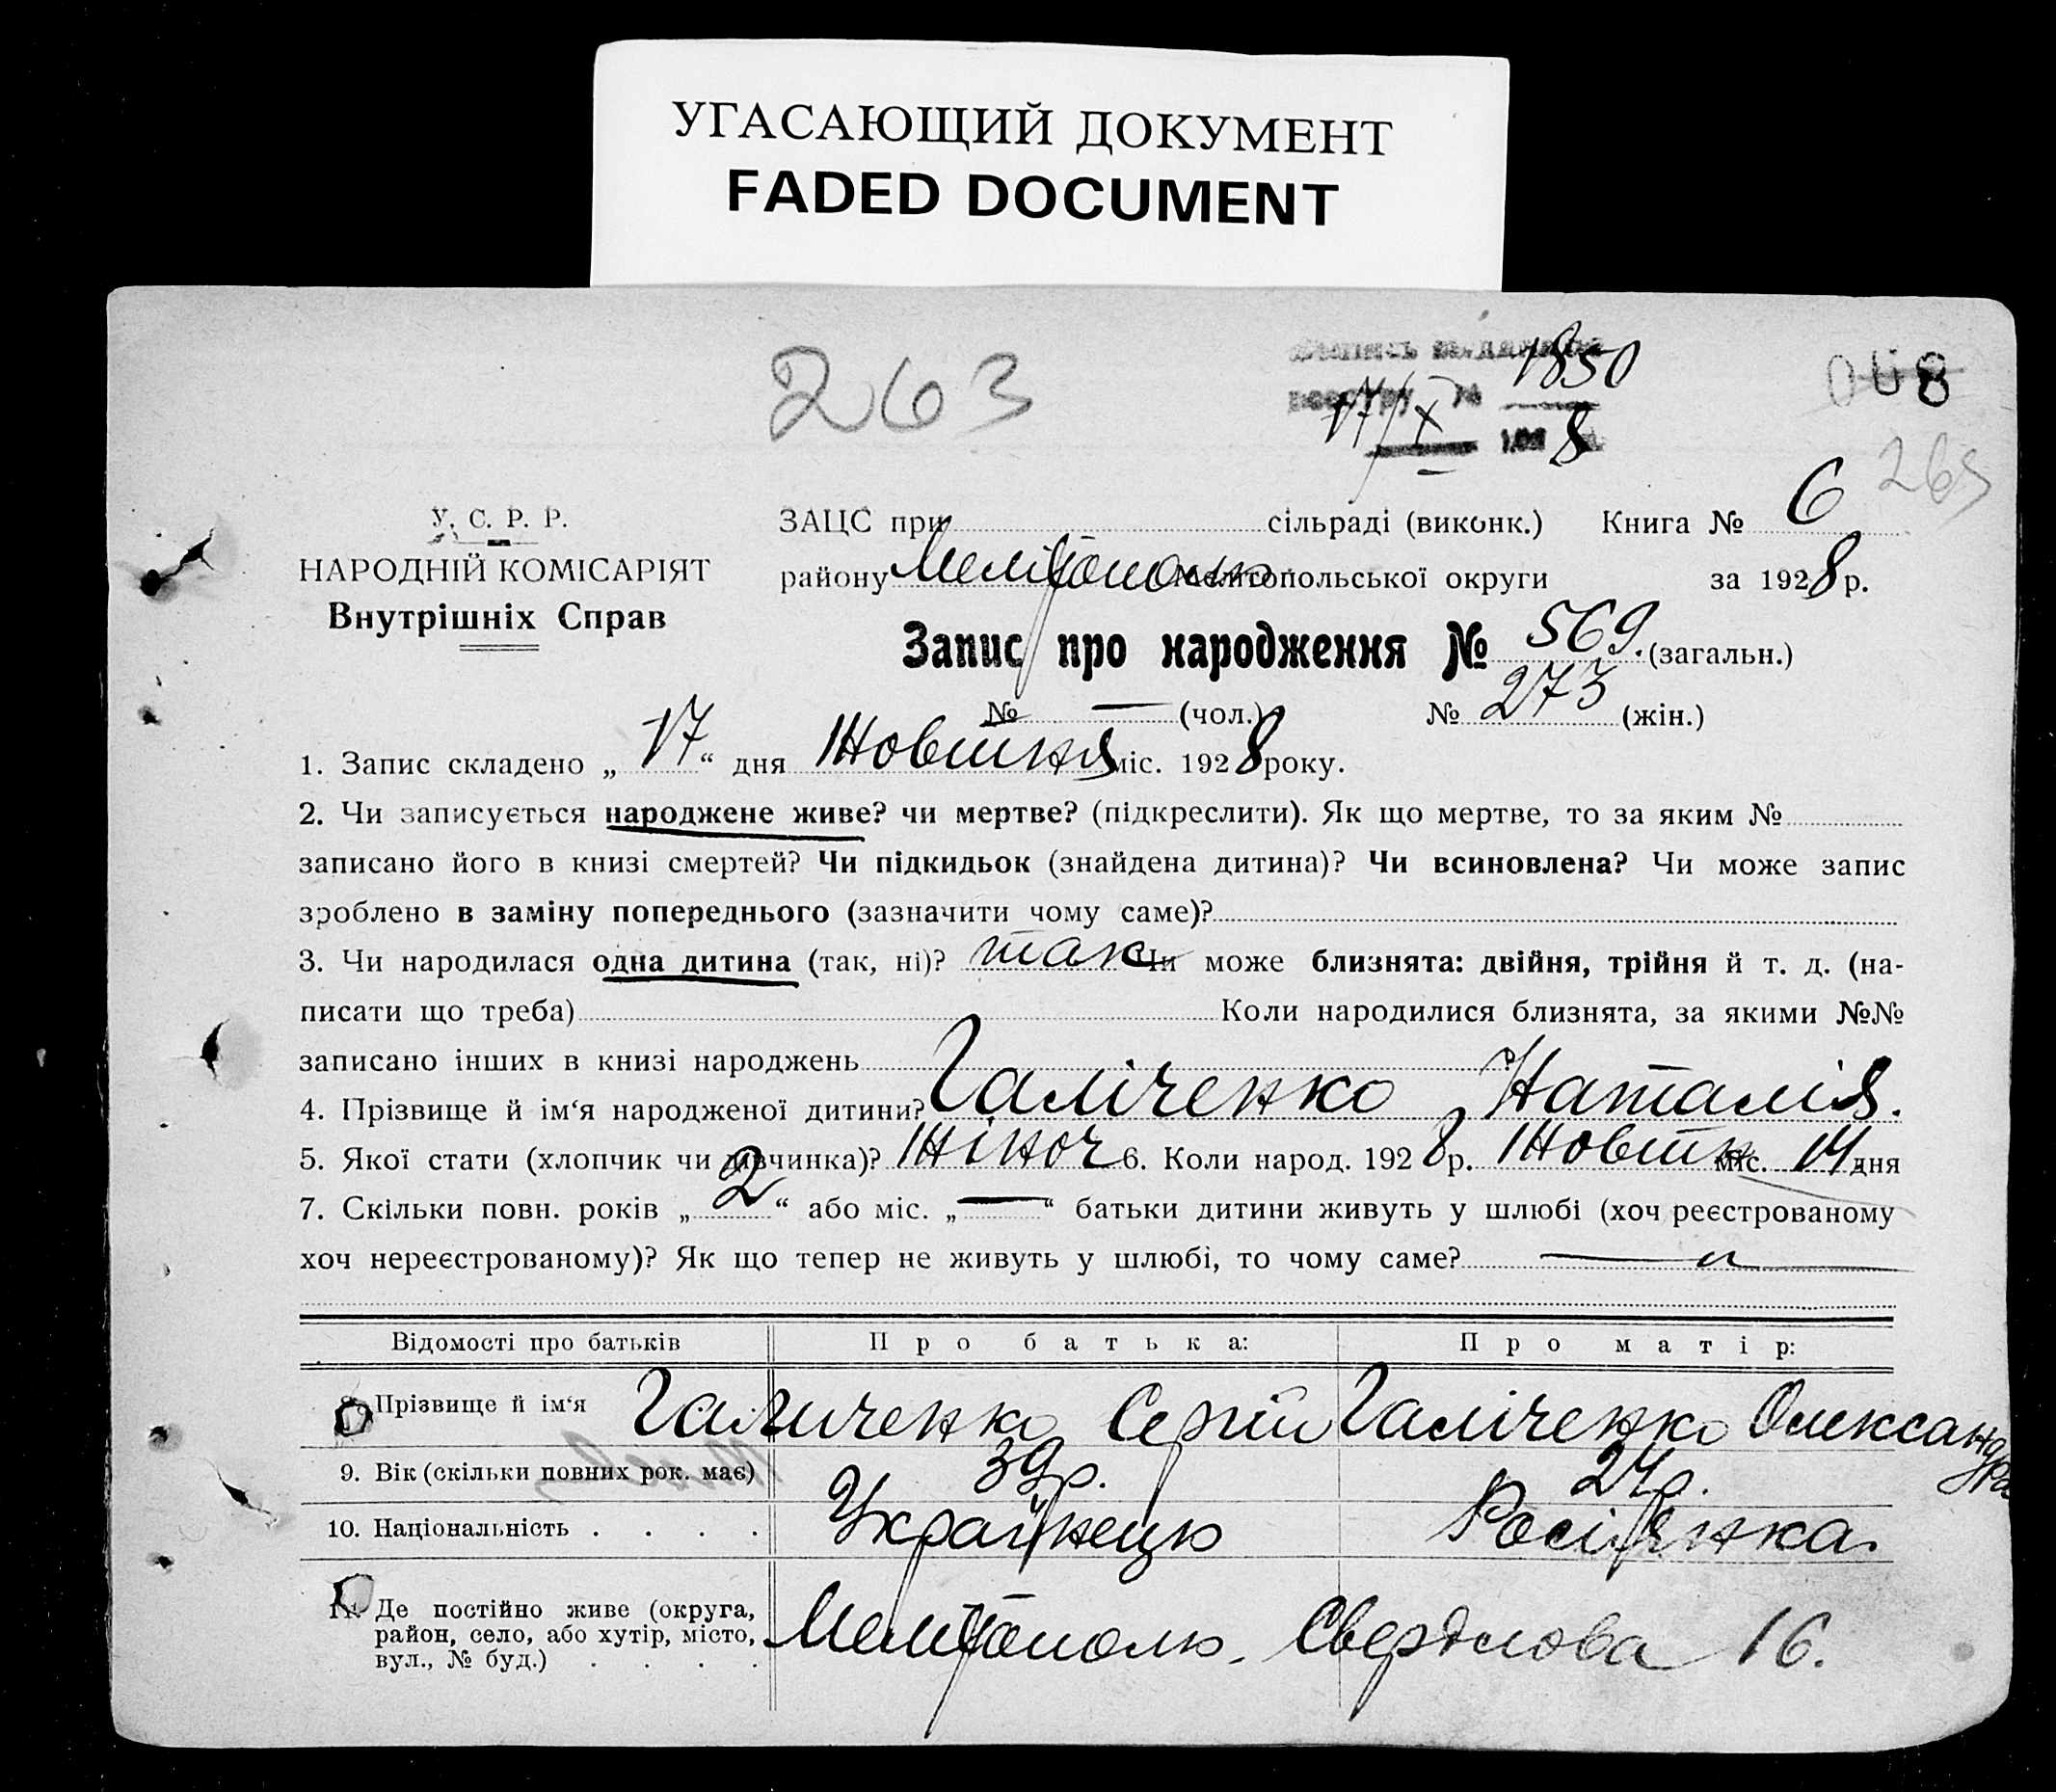 УГАСАЮЩИЙ ДОКУМЕНТ
FADED DOCUMENT
263
1850
17/X 8
008
265
У. С. Р. Р.
НАРОДНІЙ КОМІСАРІЯТ
Внутрішніх Справ
ЗАЦС при сільраді (виконк.) Книга № 6
району Мелітополь Мелітопольської округи за 1928 р.
Запис про народження № 569. (загальн.)
№ — (чол.) № 273 (жін.)
1. Запис складено „17“ дня Жовтня міс. 1928 року.
2. Чи записується народжене живе? чи мертве? (підкреслити). Як що мертве, то за яким №
записано його в книзі смертей? Чи підкидьок (знайдена дитина)? Чи всиновлена? Чи може запис
зроблено в заміну попереднього (зазначити чому саме)?
3. Чи народилася одна дитина (так, ні)? так Чи може близнята: двійня, трійня й т. д. (на-
писати що треба) Коли народилися близнята, за якими №№
записано інших в книзі народжень
4. Прізвище й ім‘я народженої дитини? Галіченко Наталія.
5. Якої стати (хлопчик чи дівчинка)? Жіноч 6. Коли народ. 1928 р. Жовтн міс. 14 дня
7. Скільки повн. років „2“ або міс. „—“ батьки дитини живуть у шлюбі (хоч реєстрованому
хоч нереєстрованому)? Як що тепер не живуть у шлюбі, то чому саме?
Відомості про батьків Про батька: Про матір:
8. Прізвище й ім‘я Галиченко Сергій Галіченко Олександра
9. Вік (скільки повних рок. має) 39 р. 24 р.
10. Національність . . . . Украйнець Росіянка.
11. Де постійно живе (округа,
район, село, або хутір, місто,
вул., № буд.) . . . . Мелітополь. Свердлова 16.